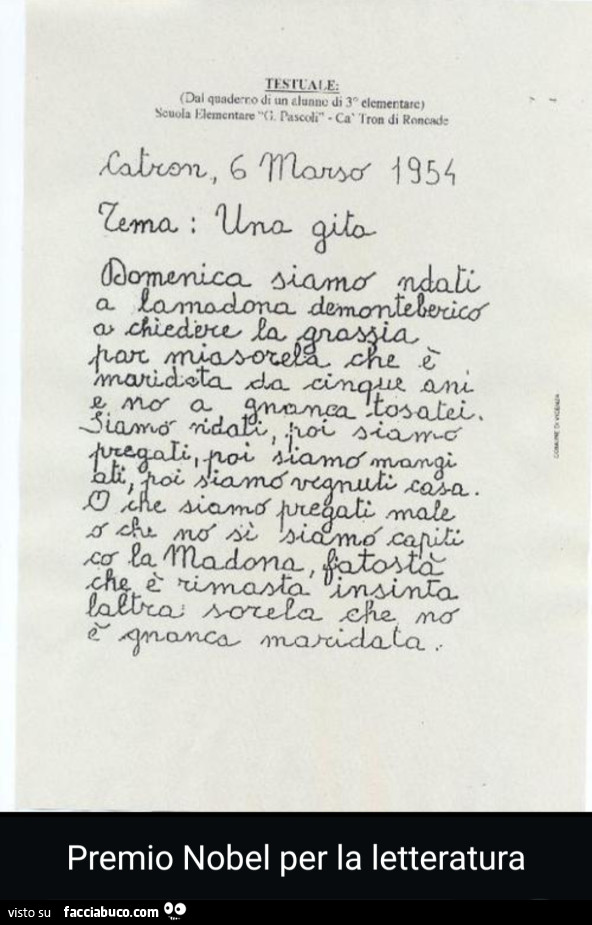 TESTUALE:
(Dal quaderno di un alunno di 3° elementare)
Scuola Elementare "G. Pascoli" - Ca' Tron di Roncade
Catron, 6 Marso 1954
Tema: Una gita
Domenica siamo ndati
a lamadona demonteberico
a chiedere la grassia
par miasorela che è
maridata da cinque ani
e no a gnanca tosatei.
Siamo ndati, poi siamo
pregati, poi siamo mangi
ati, poi siamo vegnuti casa.
O che siamo pregati male
o che no sì siamo capiti
co la Madona, fatostà
che è rimasta insinta
laltra sorela che no
è gnanca maridata.
COMUNE DI VICENZA
Premio Nobel per la letteratura
visto su facciabuco.com